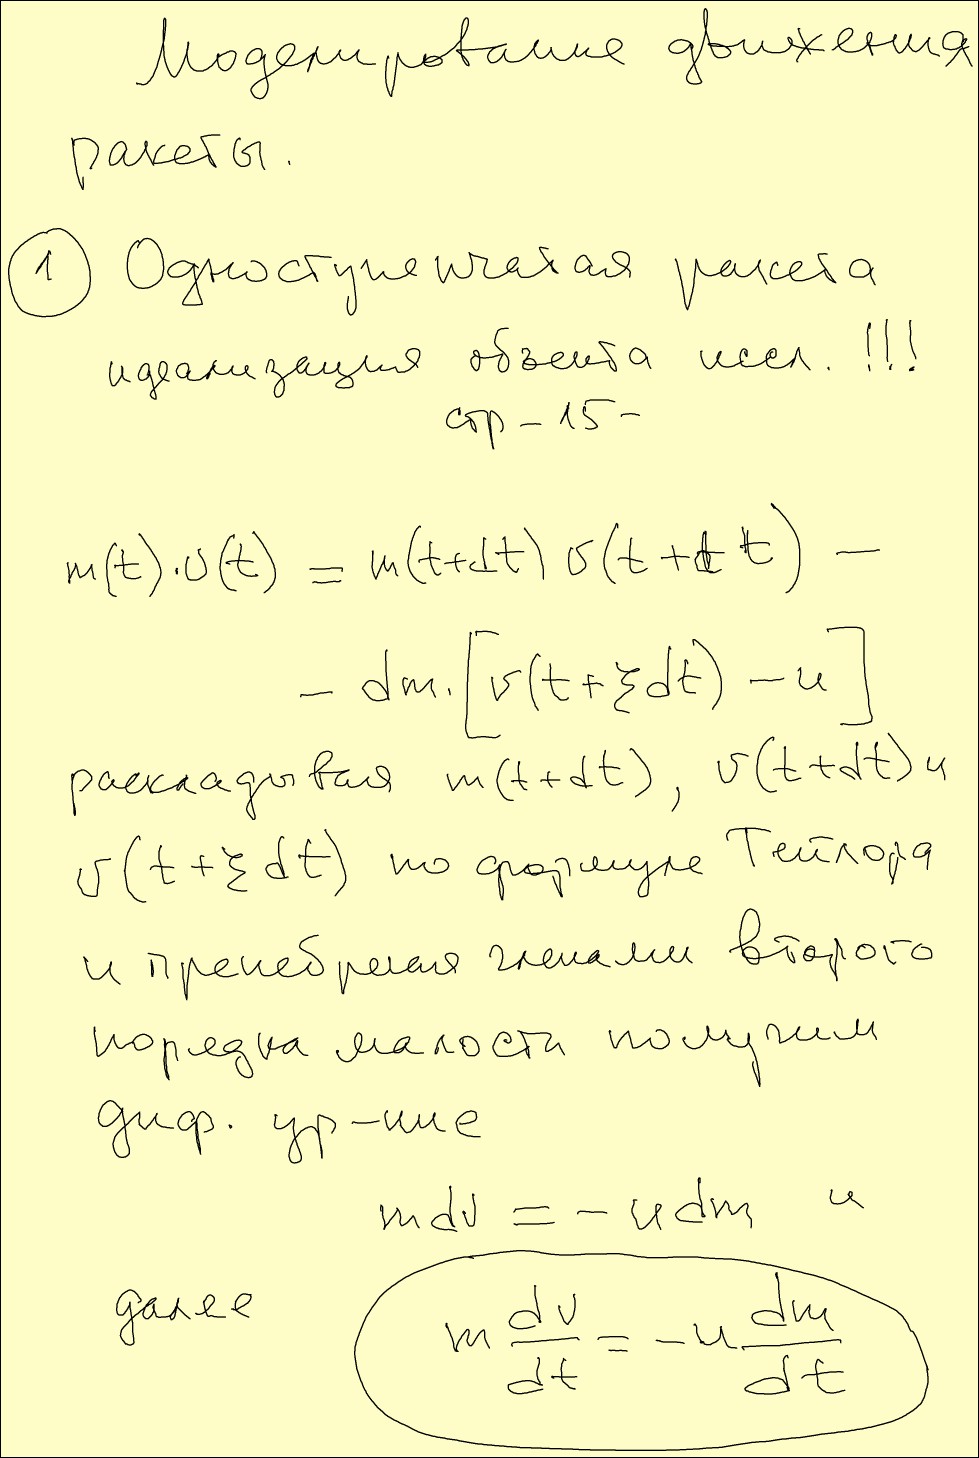 Моделирование движения
ракеты.
1 Одноступенчатая ракета
идеализация объекта иссл. !!!
стр - 15 -
m(t)·v(t) = m(t+dt) v(t+dt) -
- dm·[v(t+ξdt) - u]
раскладывая m(t+dt), v(t+dt) и
v(t+ξdt) по формуле Тейлора
и пренебрегая членами второго
порядка малости получим
диф. ур-ние
mdv = - udm и
далее m dv/dt = -u dm/dt